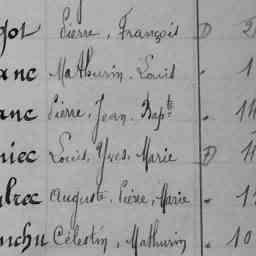 got Pierre, François D 2
anc Mathurin, Louis " 1
anc Pierre, Jean, Bapte " 11
niec Louis, Yves, Marie D 1
ltrec Auguste, Pierre, Marie " 1
nchu Célestin, Mathurin " 10